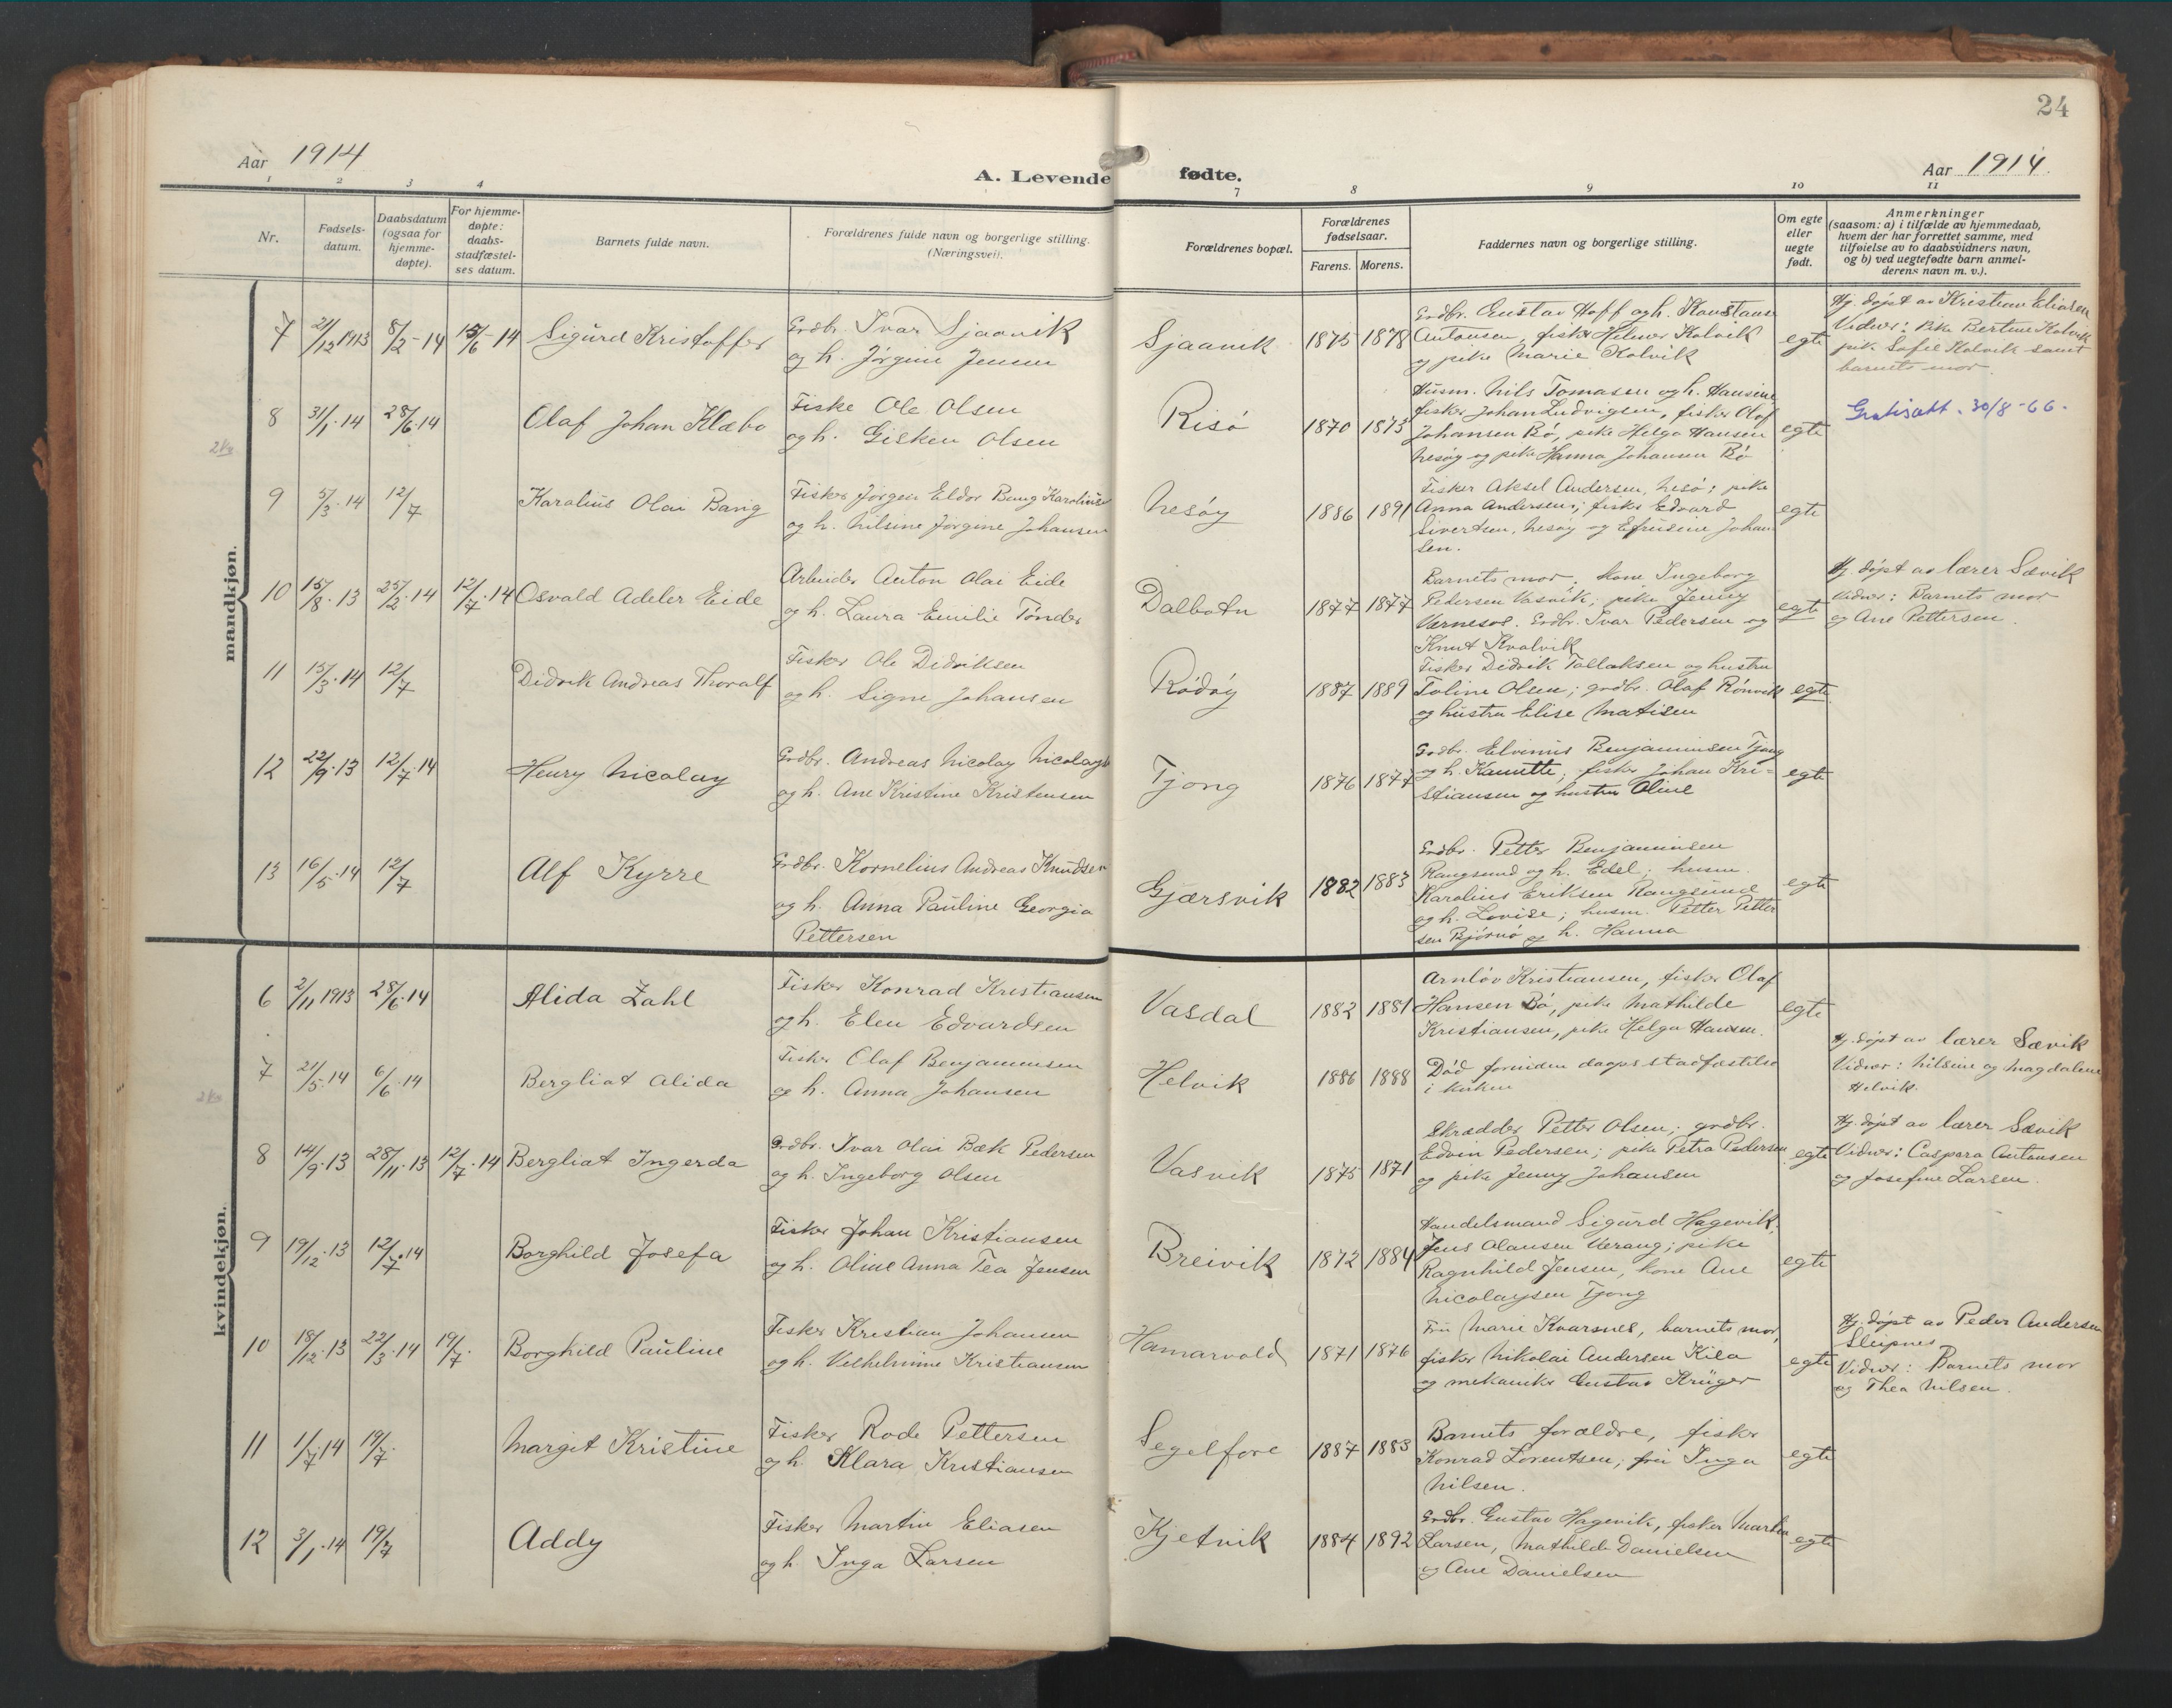 24
Aar 1914
A. Levende fødte.
Aar 1914.
1 2 3 4 7 8 9 10 11
Nr.
Fødsels-
datum.
Daabsdatum
(ogsaa for
hjemme-
døpte).
For hjemme-
døpte:
daabs-
stadfæstel-
ses datum.
Barnets fulde navn.
Forældrenes fulde navn og borgerlige stilling.
(Næringsvei).
Forældrenes bopæl.
Forældrenes
fødselsaar.
Farens. Morens.
Faddernes navn og borgerlige stilling.
Om egte
eller
uegte
født.
Anmerkninger
(saasom: a) i tilfælde av hjemmedaab,
hvem der har forrettet samme, med
tilføielse av to daabsvidners navn,
og b) ved uegtefødte barn anmel-
derens navn m. v.).
mandkjøn.
7 21/12 1913 8/2-14 15/6-14 Sigurd Kristoffer
Grdbr. Ivar Sjaavik
og h. Jørgine Jensen
Sjaavik 1875 1878
Grdbr. Gustav Hoff og h. Konstanse
Antonsen, fisker Helmer Kolvik
og pike Marie Kolvik
egte
Hj. døpt av Kristian Eliasen
Vidner: Pike Bertine Kolvik
pike Sofie Kolvik samt
barnets mor.
8 31/1-14 28/6-14 Olaf Johan Klæbo
Fisker Ole Olsen
og h. Gisken Olsen
Risø 1870 1873
Husm. Nils Tomasen og h. Hansine
fisker Johan Ludvigsen, fisker Olaf
Johansen Bø, pike Helga Hansen
Nesøy og pike Hanna Johansen Bø
egte
30/8-66.
9 5/3-14 12/7 Karolius Olai Bang
Fisker Jørgen Eldor Bang Karoliuss
og h. Nilsine Jørgine Johansen
Nesøy 1886 1891
Fisker Aksel Andersen, Nesø; pike
Anna Andersen; fisker Edvard
Sivertsen, Nesøy og Efrusine Johan
sen.
egte
10 15/8-13 25/2-14 12/7-14 Osvald Adeler Eide
Arbeider Anton Olai Eide
og h. Laura Emilie Tønder
Dalbotn 1877 1877
Barnets mor, kone Ingeborg
Pedersen Vasvik; pike Jenny
Værnesos. Grdbr. Ivar Pedersen og
Knut Kvalvik
egte
Hj. døpt av lærer Sævik
Vidner: Barnets mor
og Ane Pettersen.
11 15/3-14 12/7 Didrik Andreas Thoralf
Fisker Ole Didriksen
og h. Signe Johansen
Rødøy 1887 1889
Fisker Didrik Tollaksen og hustru
Toline Olsen; grdbr. Olaf Rønvik
og hustru Elise Matisen
egte
12 22/9-13 12/7-14 Henry Nicolay
Grdbr. Andreas Nicolay Nicolays
og h. Ane Kristine Kristensen
Tjong 1876 1877
Grdbr. Elvinus Benjaminsen Tjong
og h. Kanutte; fisker Johan Kri=
stiansen og hustru Oline
egte
13 16/5-14 12/7 Alf Kyrre
Grdbr. Kornelius Andreas Knudsen
og h. Anna Pauline Georgia
Pettersen
Gjærsvik 1882 1883
Grdbr. Petter Benjaminsen
Rangsund og h. Edel; husm.
Karolius Eriksen Rangsund
og h. Lovise; husm. Petter Petter
sen Bjørnø og h. Hanna
egte
kvindekjøn.
6 2/11 1913 28/6-14 Alida Zahl
Fisker Konrad Kristiansen
og h. Elen Edvardsen
Vasdal 1882 1881
Arnløv Kristiansen, fisker Olaf
Hansen Bø, pike Mathilde
Kristiansen, pike Helga Hansen.
egte
7 21/5-14 6/6-14 Bergliot Alida
Fisker Olaf Benjaminsen
og h. Anna Johansen
Helvik 1886 1888
Død forinden daapsstadfæstelse
i kirken
Hj. døpt av lærer Sævik
Vidner: Nilsine og Magdalene
Helvik.
8 14/9-13 28/11-13 12/7-14 Bergliot Ingerda
Grdbr. Ivar Olai Bæk Pedersen
og h. Ingeborg Olsen
Vasvik 1875 1871
Skrædder Petter Olsen; grdbr.
Edvin Pedersen; pike Petra Pedersen
og pike Jenny Johansen
egte
Hj. døpt av lærer Sævik
Vidner: Caspara Antonsen
og Josefine Larsen.
9 19/12-13 12/7-14 Borghild Josefa
Fisker Johan Kristiansen
og h. Oline Anna Tea Jensen
Breivik 1872 1884
Handelsmand Sigurd Hagevik,
Jens Olausen Værang; pike
Ragnhild Jensen, kone Ane
Nicolaysen Tjong
egte
10 18/12-13 22/3-14 19/7. Borghild Pauline
Fisker Kristian Johansen
og h. Vilhelmine Kristiansen
Hamarvold 1871 1876
Fru Marie Kvarsnes, barnets mor,
fisker Nikolai Andersen Kila
og mekaniker Gustav Krüger
egte
Hj. døpt av Peder Andersen
Sleipnes
Vidner: Barnets mor
og Thea Nilsen.
11 1/7-14 19/7. Margit Kristine
Fisker Rode Pettersen
og h. Klara Kristiansen
Segelfore 1887 1883
Barnets forældre, fisker
Konrad Lorentsen; fru Inga
Nilsen.
egte
12 3/1-14 19/7 Addy
Fisker Martin Eliasen
og h. Inga Larsen
Kjetvik 1884 1892
Grdbr. Gustav Hagevik, fisker Martin
Larsen, Mathilde Danielsen
og Ane Danielsen
egte